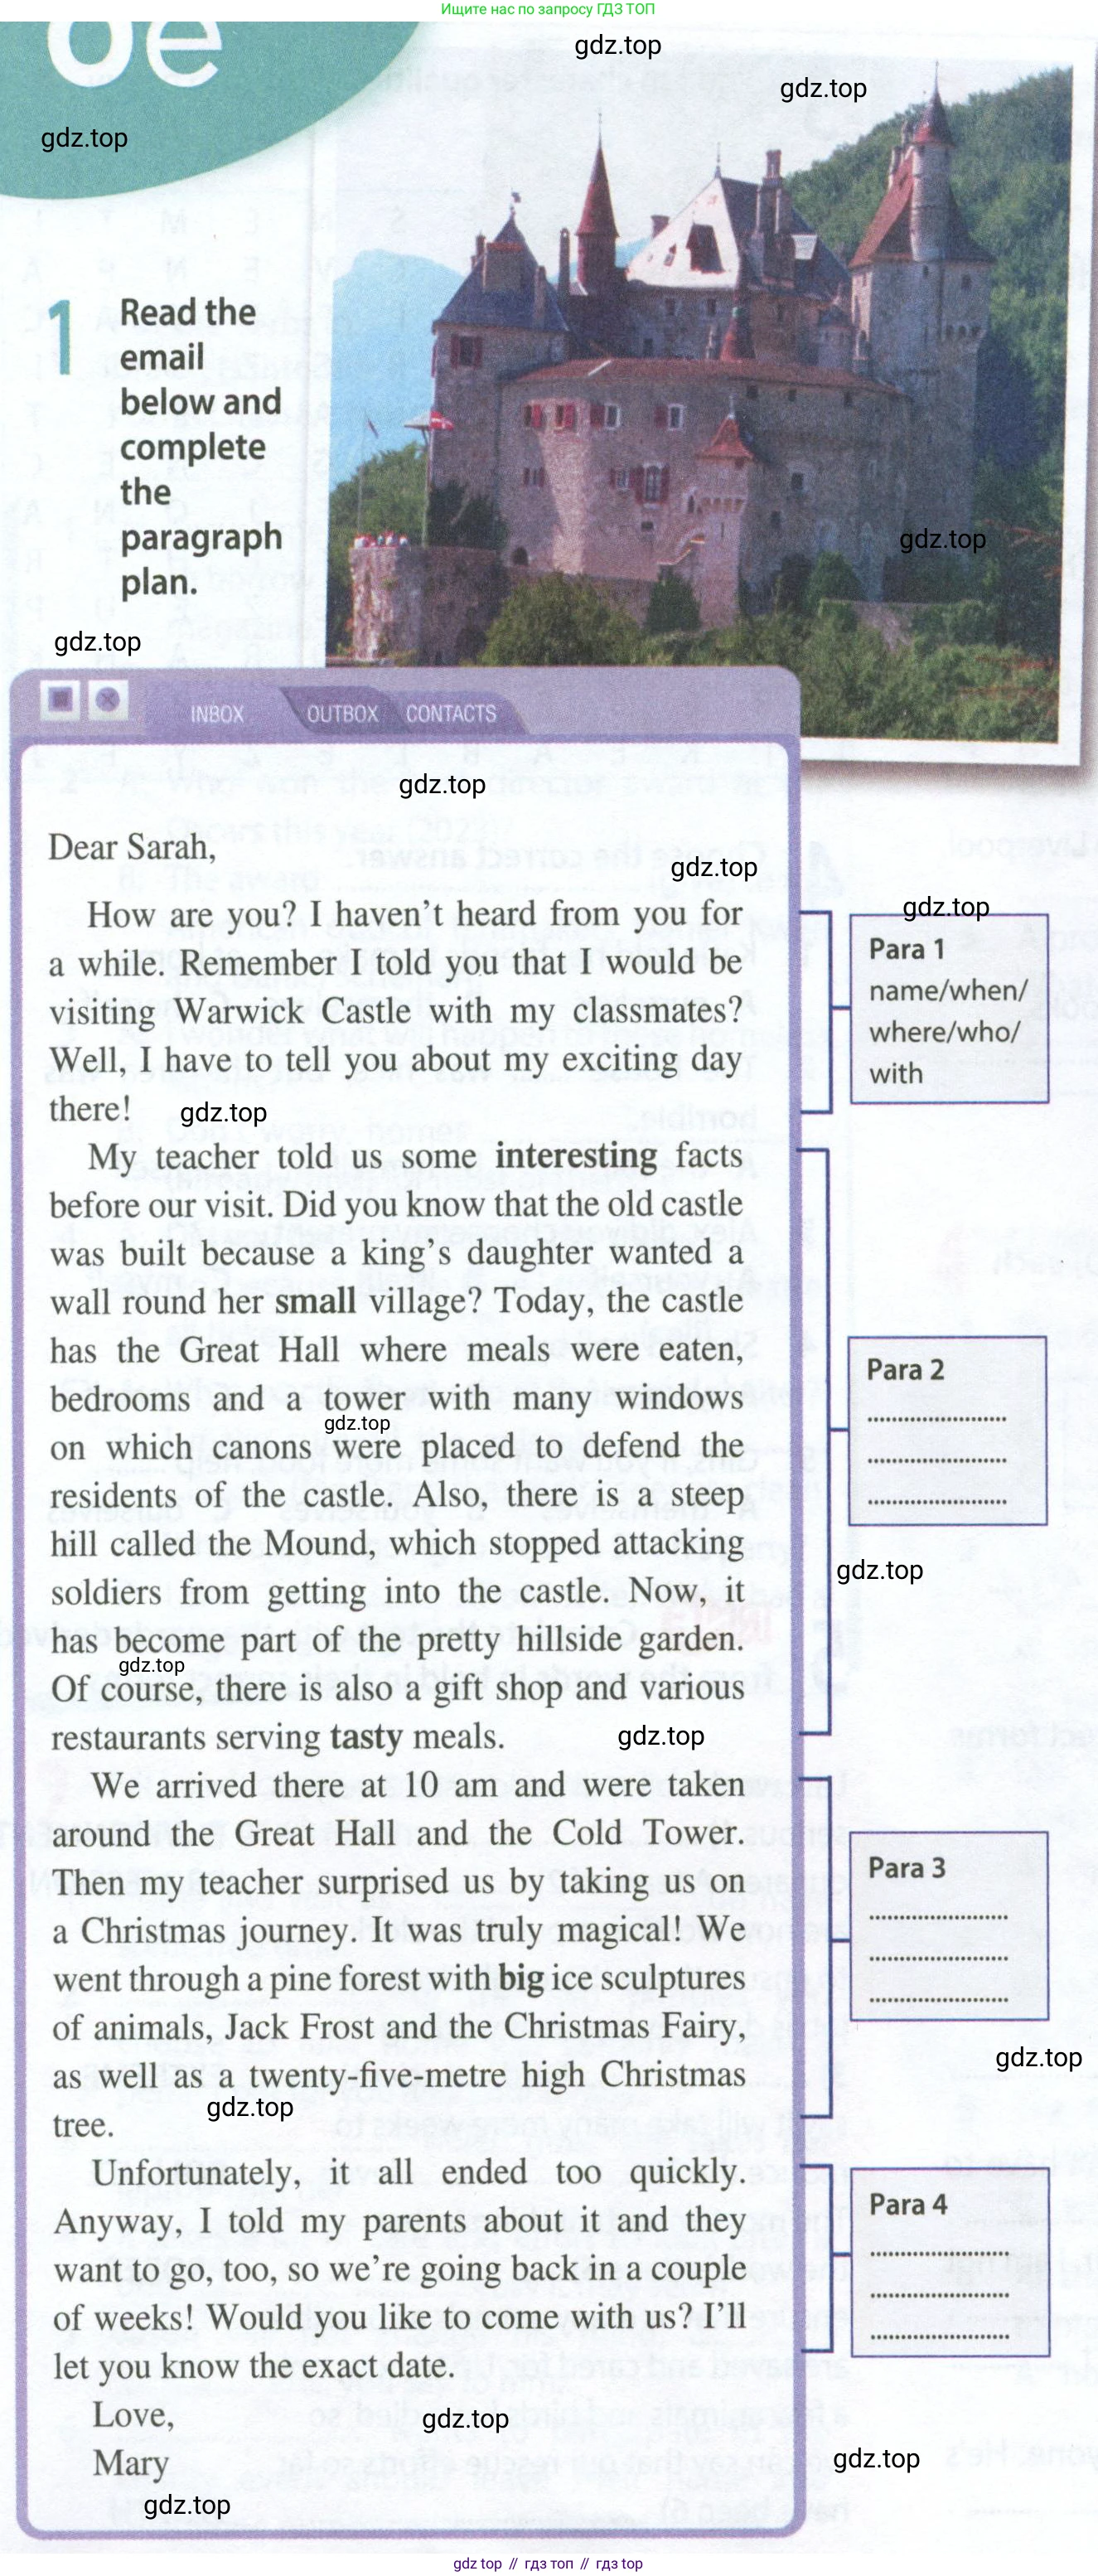 Ищите нас по запросу ГДЗ ТОП
6e
gdz.top
gdz.top
gdz.top
1 Read the
email
below and
complete
the
paragraph
plan.
gdz.top
gdz.top
INBOX OUTBOX CONTACTS
gdz.top
Dear Sarah,
gdz.top
How are you? I haven't heard from you for
a while. Remember I told you that I would be
visiting Warwick Castle with my classmates?
Well, I have to tell you about my exciting day
there!
gdz.top
gdz.top
Para 1
name/when/
where/who/
with
My teacher told us some interesting facts
before our visit. Did you know that the old castle
was built because a king's daughter wanted a
wall round her small village? Today, the castle
has the Great Hall where meals were eaten,
bedrooms and a tower with many windows
gdz.top
on which canons were placed to defend the
residents of the castle. Also, there is a steep
hill called the Mound, which stopped attacking
soldiers from getting into the castle. Now, it
has become part of the pretty hillside garden.
gdz.top
Of course, there is also a gift shop and various
restaurants serving tasty meals.
gdz.top
Para 2
....................
....................
....................
gdz.top
We arrived there at 10 am and were taken
around the Great Hall and the Cold Tower.
Then my teacher surprised us by taking us on
a Christmas journey. It was truly magical! We
went through a pine forest with big ice sculptures
of animals, Jack Frost and the Christmas Fairy,
as well as a twenty-five-metre high Christmas
tree.
gdz.top
Para 3
....................
....................
....................
gdz.top
Unfortunately, it all ended too quickly.
Anyway, I told my parents about it and they
want to go, too, so we're going back in a couple
of weeks! Would you like to come with us? I'll
let you know the exact date.
Para 4
....................
....................
....................
Love,
gdz.top
Mary
gdz.top
gdz.top
gdz top // гдз топ // гдз top